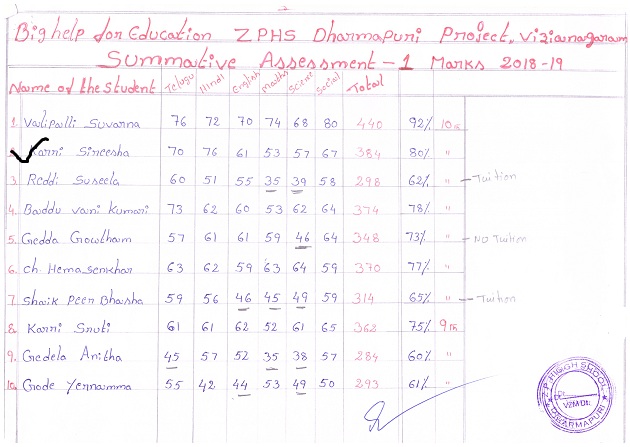 Bighelp for Education ZPHS Dharmapuri Project, Vizianagaram
Summative Assessment - 1 Marks 2018-19
Name of the student Telugu Hindi English Maths Science Social Total
1. Valipalli Suvarna 76 72 70 74 68 80 440 92% 10th
Karri Sireesha 70 76 61 53 57 67 384 80% "
3. Reddi Suseela 60 51 55 35 39 58 298 62% " - Tuition
4. Boddu vani Kumari 73 62 60 53 62 64 374 78% "
5. Gedda Gowtham 57 61 61 59 46 64 348 73% " - NO Tuition
6. Ch. Hemasenkhar 63 62 59 63 64 59 370 77% "
7. Shaik Peer Bhasha 59 56 46 45 49 59 314 65% " - Tuition
8. Karri Sruti 61 61 62 52 61 65 362 75% 9th
9. Gedela Anitha 45 57 52 35 38 57 284 60% "
10. Gode Yernamma 55 42 44 53 49 50 293 61% "
Z.P. HIGH SHOOL
VZM Dt.
DHARMAPURI